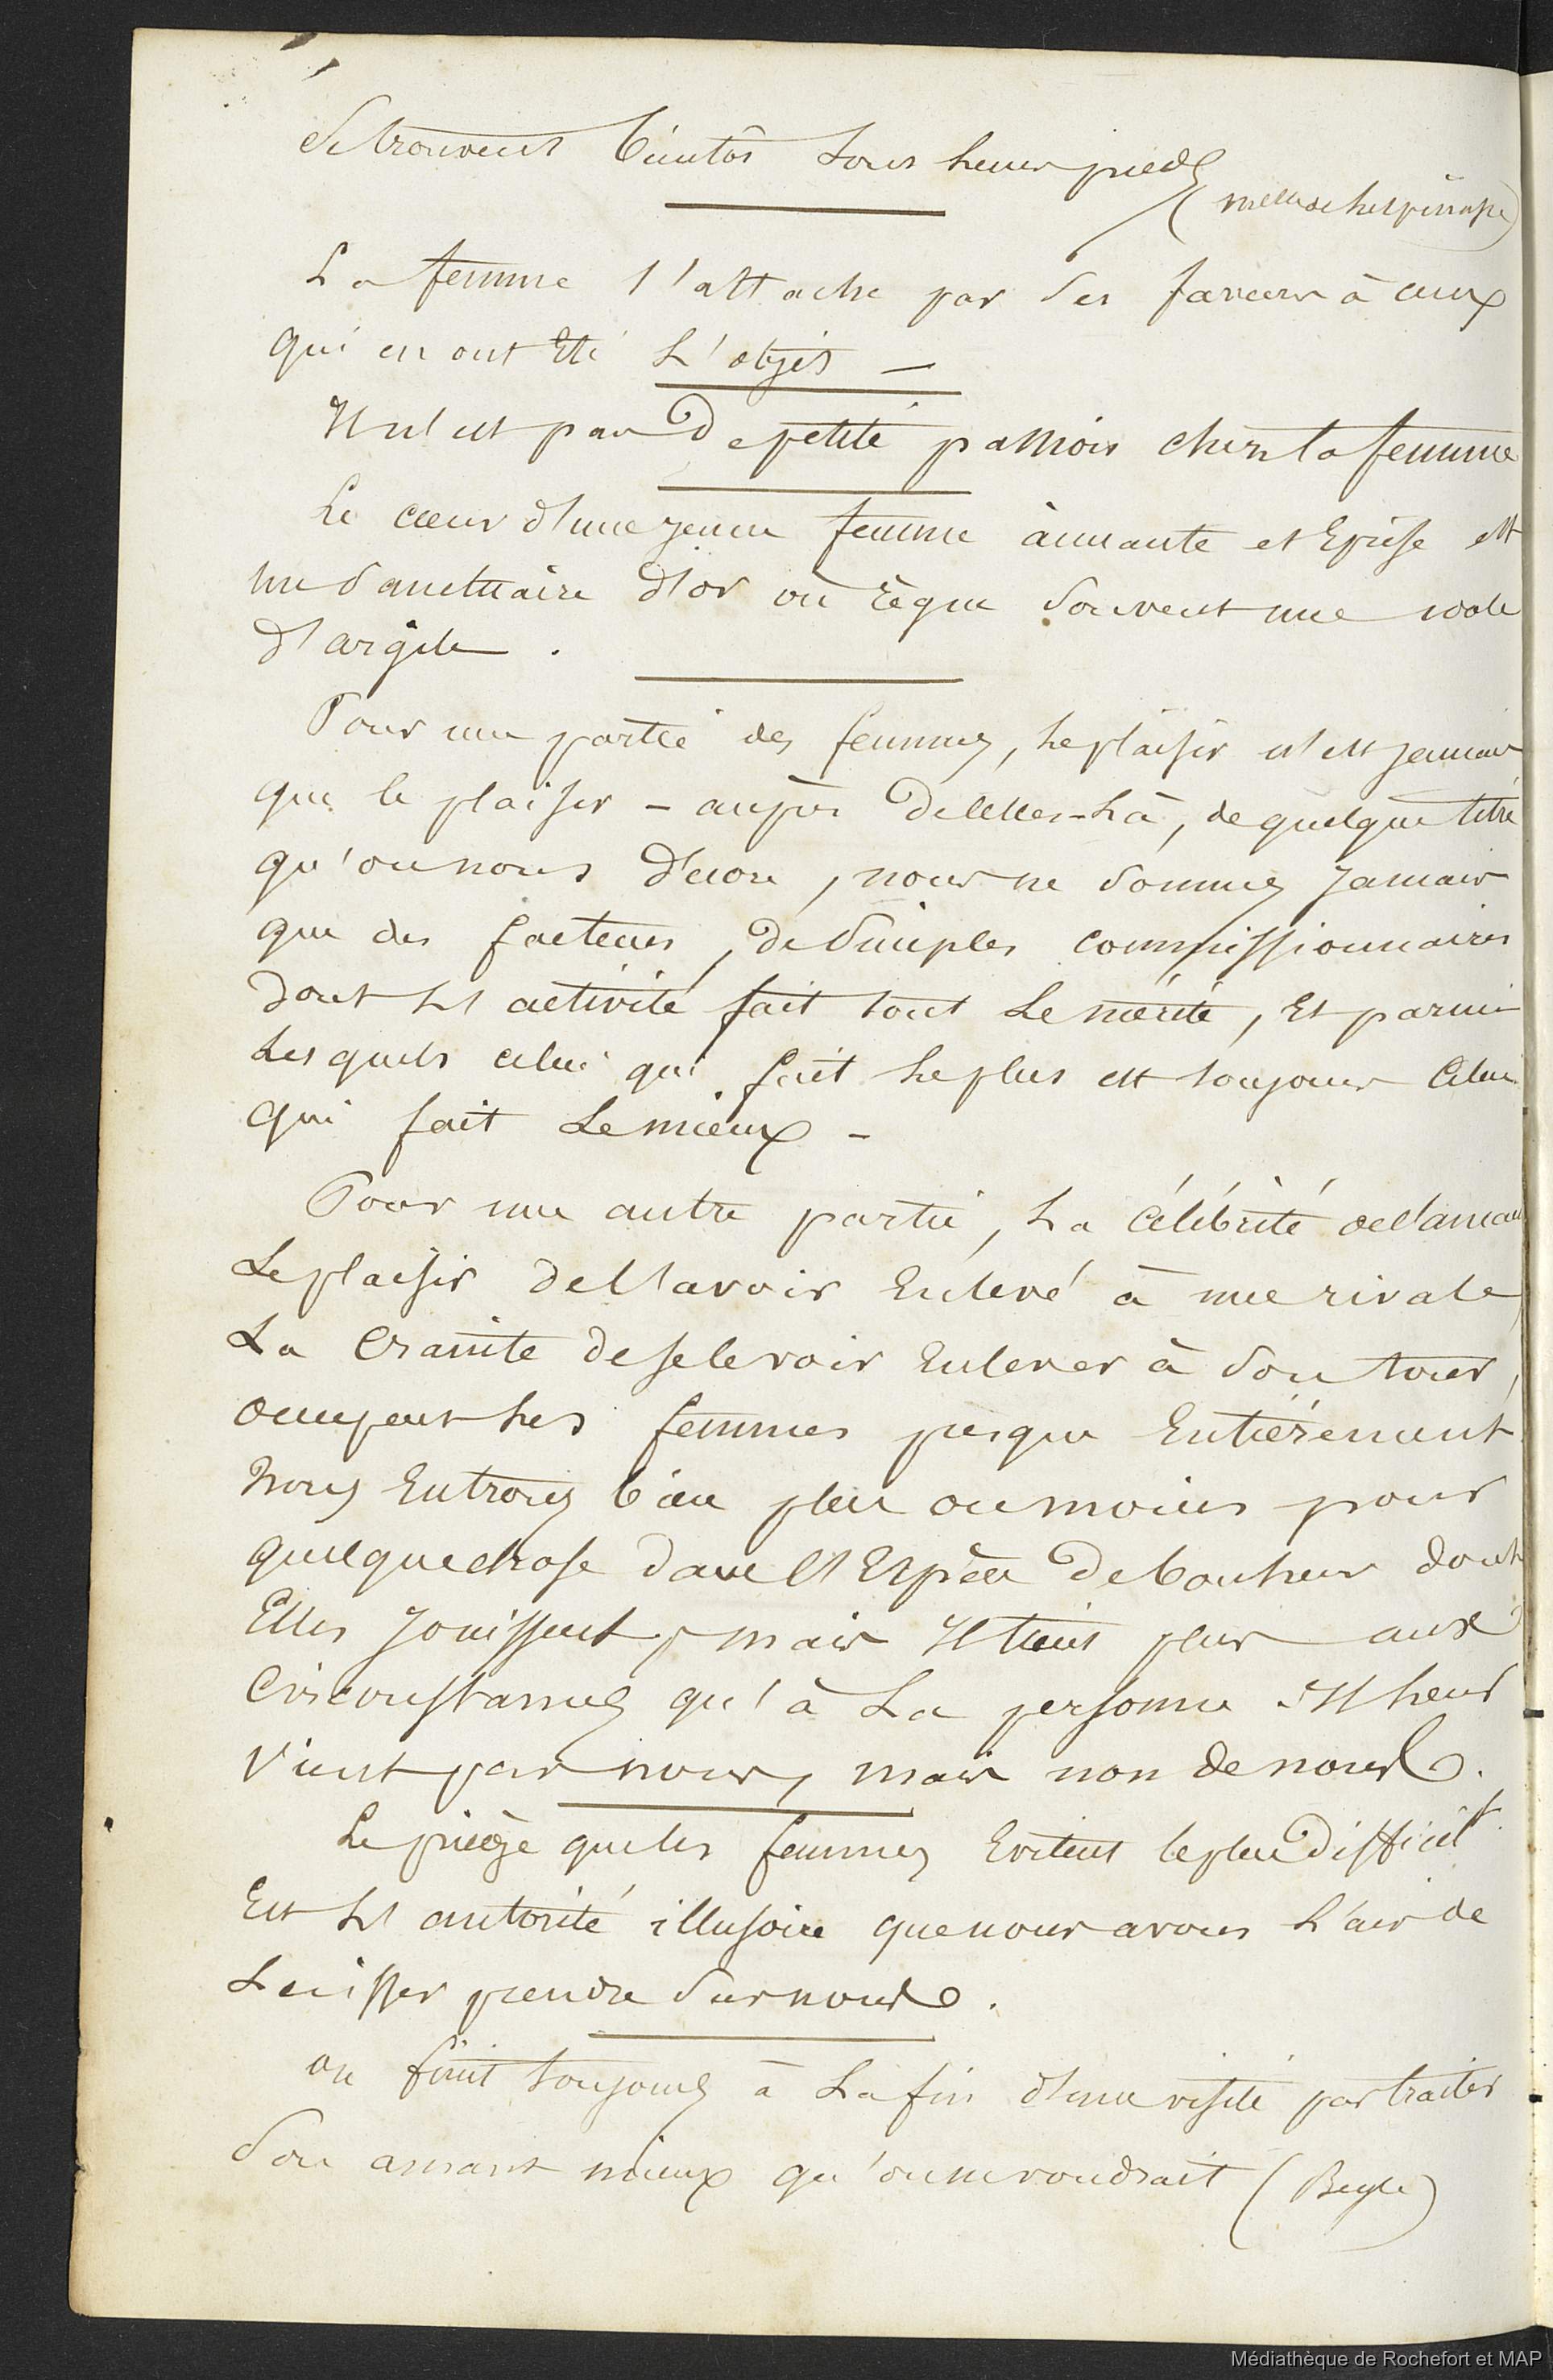 Se trouvent bientôt sous leurs pieds
(melle de Lespinasse)
La femme s'attache par ses faveurs à ceux
qui en ont Eté L'objet —
Il n'est pas De petite passion chez la femme
Le cœur d'une jeune femme aimante et Eprise est
un Sanctuaire d'or où règne Souvent une idole
d'argile .
Pour une partie des femmes, le plaisir n'est jamais
que le plaisir - auprès De celles-Là, de quelque titre
qu'on nous Décore, nous ne Sommes Jamais
que des facteurs, de Simples commissionnaires
dont L'activité fait tout Le mérite, Et parmi
Lesquels celui qui fait Le plus est toujours Celui
qui fait Le mieux -
Pour une autre partie, La Célébrité de l'amant
Le plaisir de l'avoir Enlevé à une rivale,
La Crainte de se le voir Enlever à Son tour,
occupent Les femmes presque Entièrement.
Nous Entrons bien plus ou moins pour
quelque chose dans l'Espèce De bonheur dont
Elles Jouissent, mais Il tient plus aux
Circonstances qu'à La personne Il Leur
Vient par nous, mais non de nous.
Le piège que les femmes Evitent le plus Difficilt.
Est L'autorité illusoire que nous avons L'air de
Laisser prendre Sur nous.
on finit toujours à La fin d'une visite par traiter
Son amant mieux qu'on ne voudrait (Beyle)
Médiathèque de Rochefort et MAP